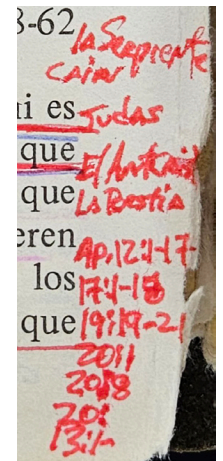 3-62
la Serpiente
cain
ni es Judas
que El Antcris
que La Bestia
eren Ap.12:1-17-
los 17:1-18
que 19:19-21
2011
2018
201
13:1-